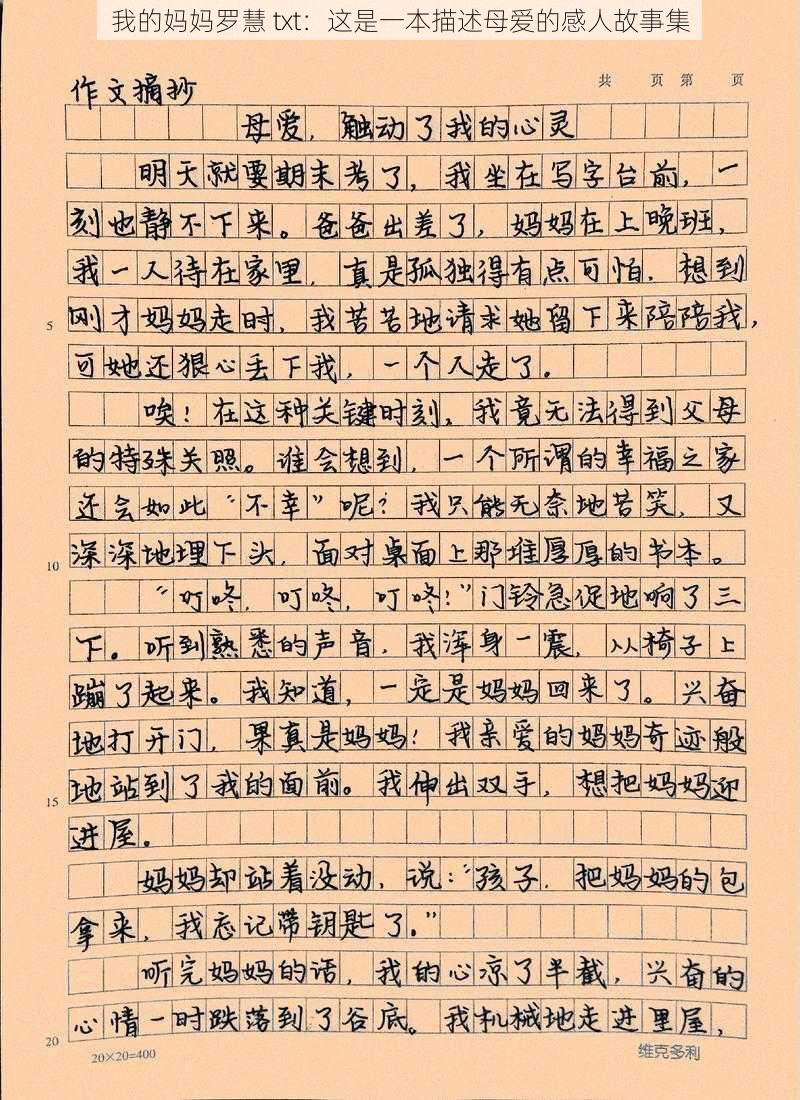 我的妈妈罗慧 txt：这是一本描述母爱的感人故事集
共 页 第 页
作文摘抄
母爱，触动了我的心灵
明天就要期末考了，我坐在写字台前，一
刻也静不下来。爸爸出差了，妈妈在上晚班，
我一人待在家里，真是孤独得有点可怕．想到
5
刚才妈妈走时，我苦苦地请求她留下来陪陪我，
可她还狠心丢下我，一个人走了．
唉！在这种关键时刻，我竟无法得到父母
的特殊关照。谁会想到，一个所谓的幸福之家
还会如此“不幸”呢？我只能无奈地苦笑，又
10
深深地埋下头，面对桌面上那堆厚厚的书本。
“叮咚，叮咚，叮咚！”门铃急促地响了三
下。听到熟悉的声音，我浑身一震，从椅子上
蹦了起来。我知道，一定是妈妈回来了。兴奋
地打开门，果真是妈妈！我亲爱的妈妈奇迹般
15
地站到了我的面前。我伸出双手，想把妈妈迎
进屋。
妈妈却站着没动，说：“孩子．把妈妈的包
拿来，我忘记带钥匙了．”
听完妈妈的话，我的心凉了半截，兴奋的
20
心情一时跌落到了谷底。我机械地走进里屋，
20×20=400
维克多利